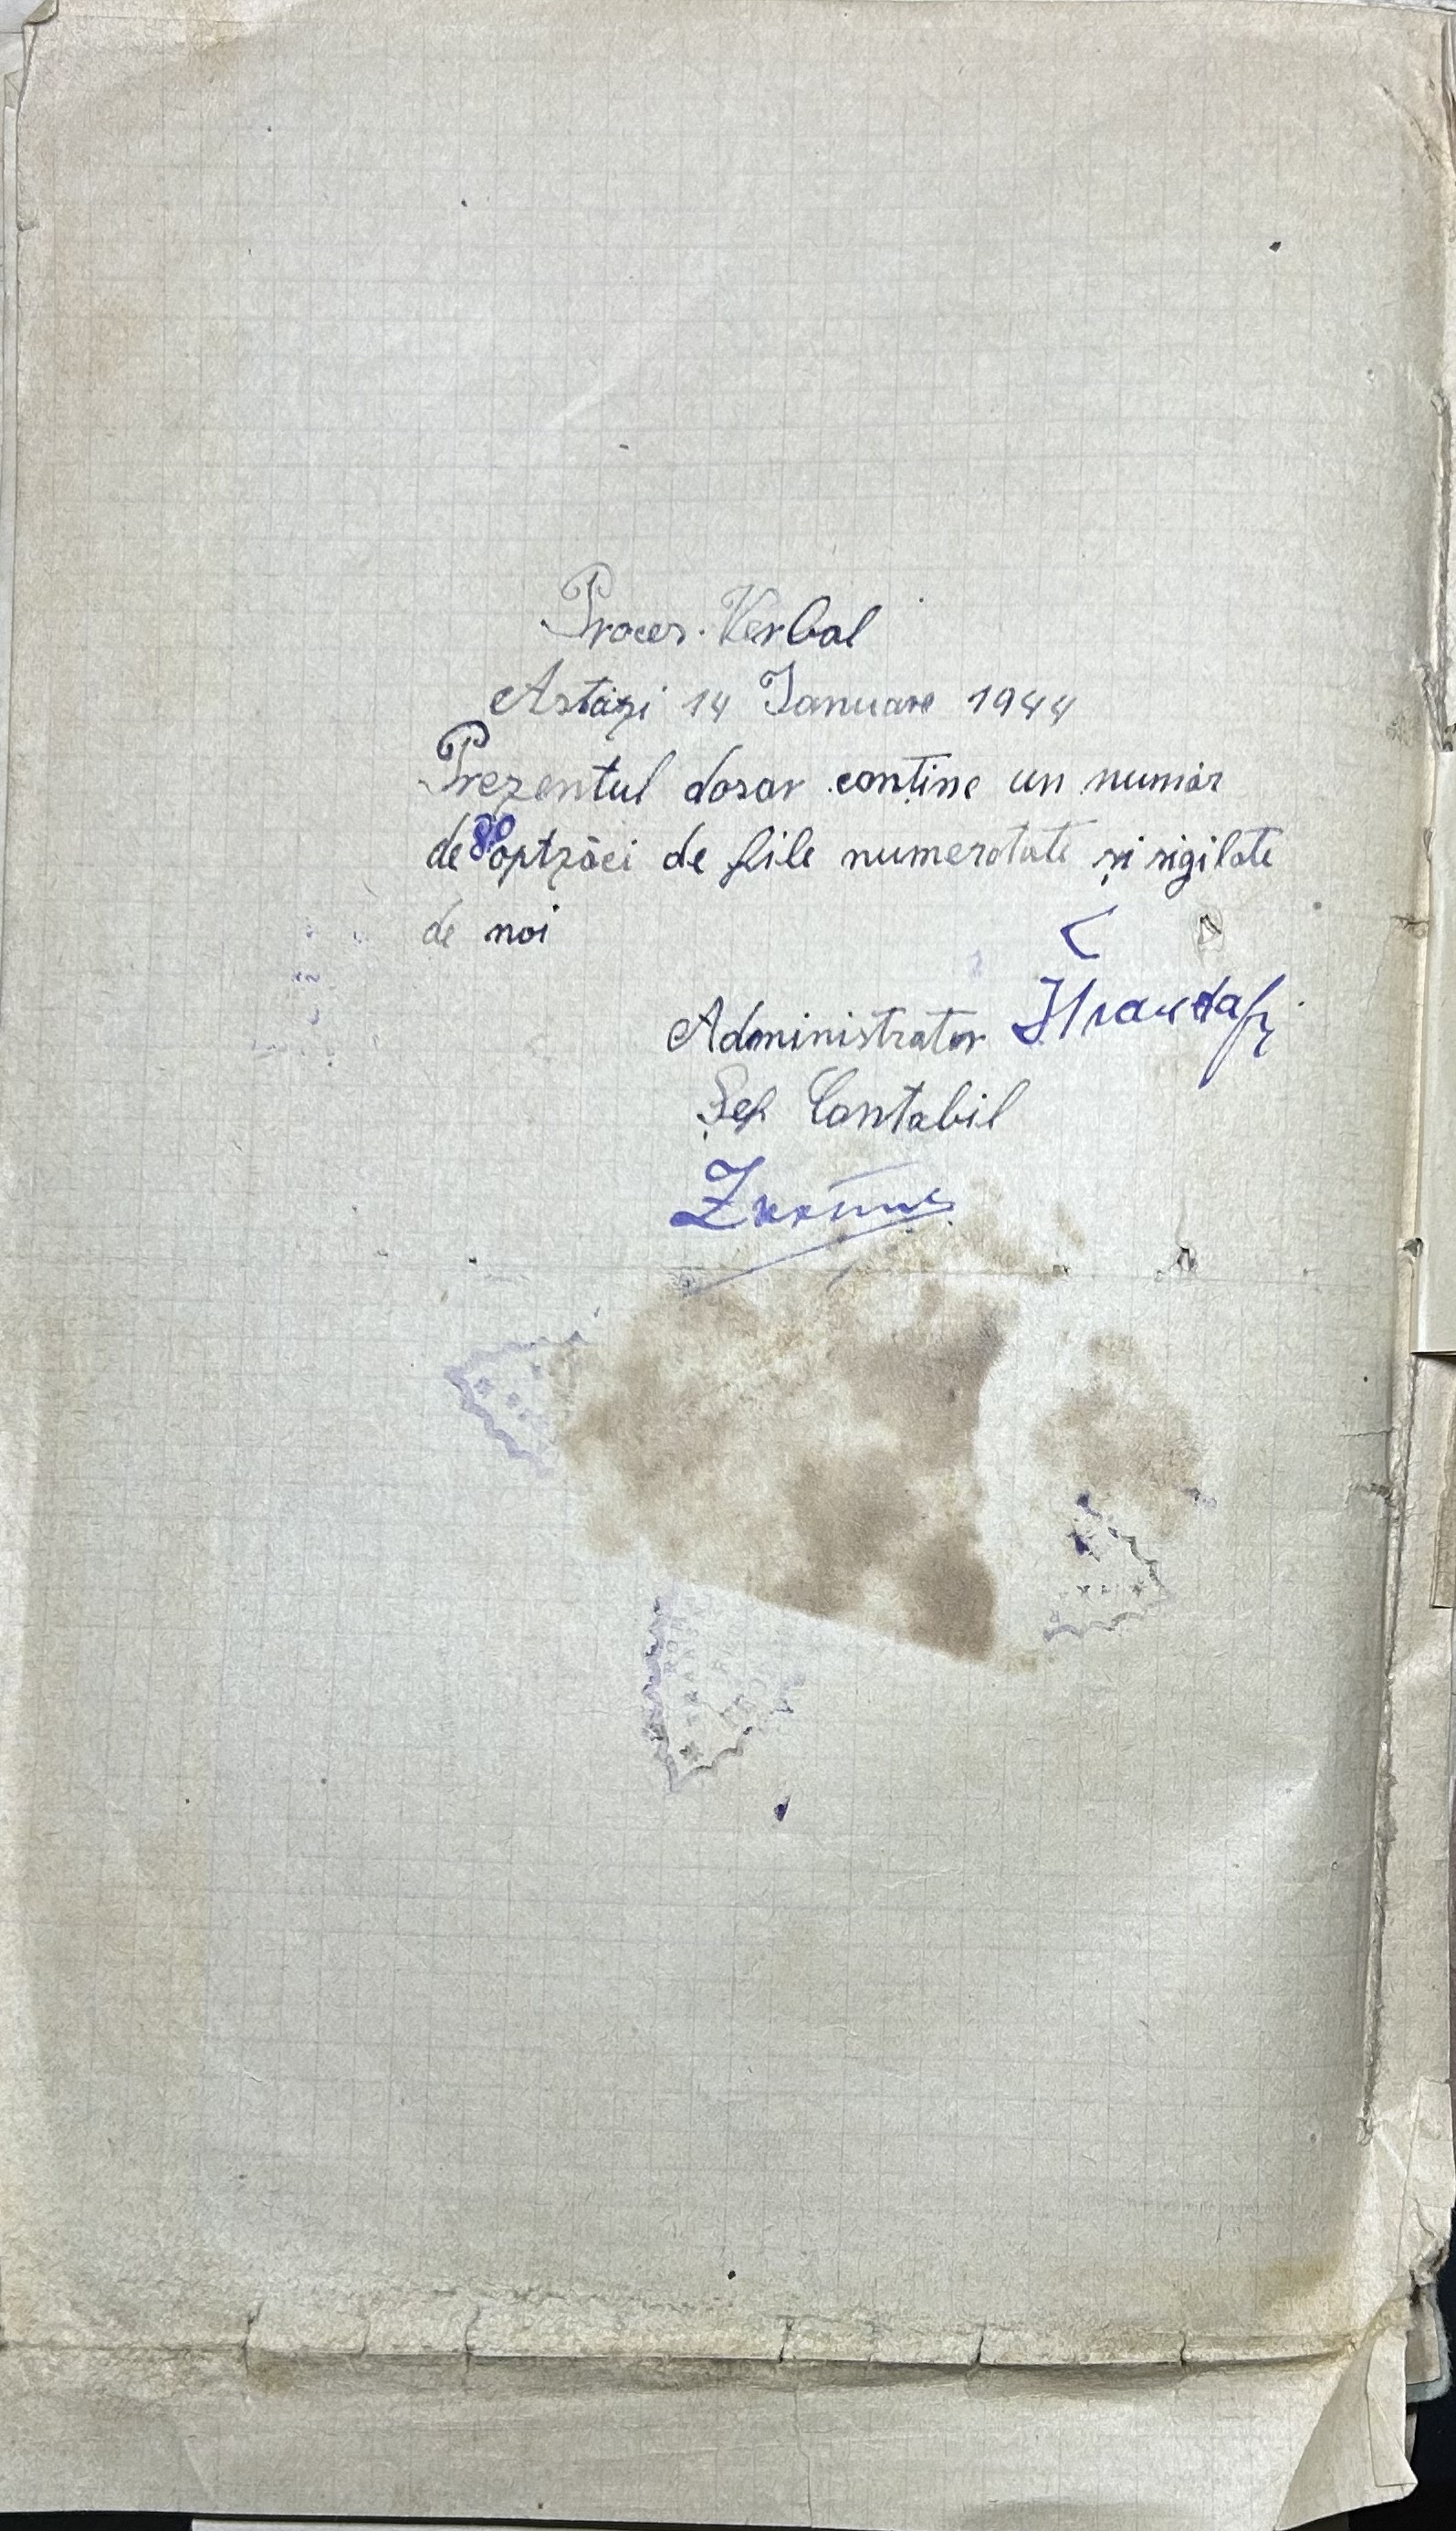 Proces-Verbal
Astăzi 14 Ianuare 1944
Prezentul dosar conține un număr
de 80 optzăci de file numerotate și sigilate
de noi
Administrator
Șef Contabil